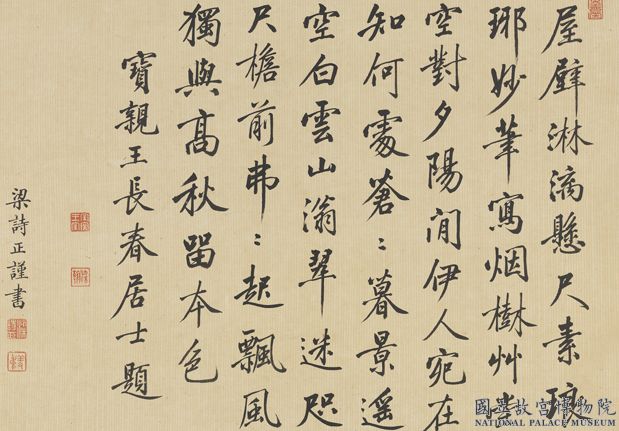 屋壁淋漓懸尺素琅
琊妙筆寫烟樹艸堂
空對夕陽閒伊人宛在
知何處蒼〻暮景遥
空白雲山滃翠迷咫
尺檐前弗〻起飄風
獨與高秋留本色
寶親王長春居士題
梁詩正謹書
國立故宮博物院
NATIONAL PALACE MUSEUM